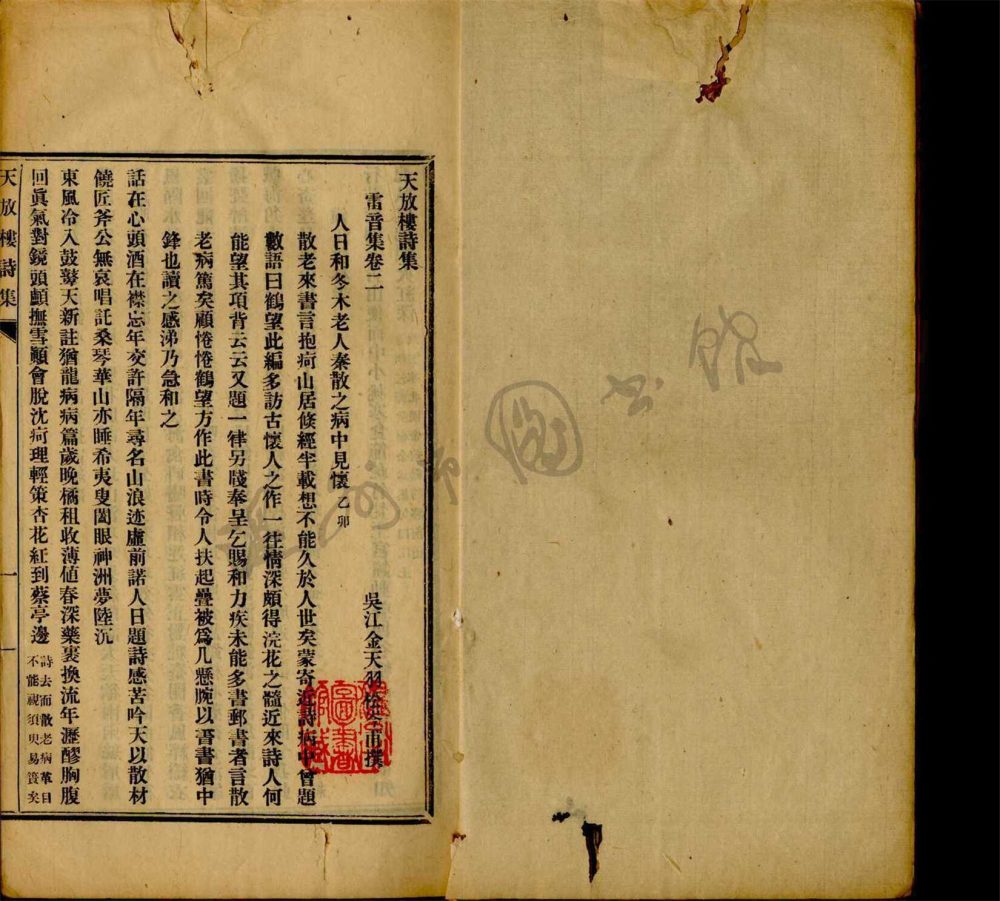 天放樓詩集
雷音集卷二
吳江金天羽松岑甫撰
人日和冬木老人秦散之病中見懷乙卯
散老來書言抱疴山居倏經半載想不能久於人世矣蒙寄近詩病中曾題
數語曰鶴望此編多訪古懷人之作一往情深頗得浣花之髓近來詩人何
能望其項背云云又題一律另牋奉呈乞賜和力疾未能多書郵書者言散
老病篤矣顧惓惓鶴望方作此書時令人扶起疊被爲几懸腕以書書猶中
鋒也讀之感涕乃急和之
話在心頭酒在襟忘年交許隔年尋名山浪迹虛前諾人日題詩感苦吟天以散材
饒匠斧公無哀唱託桑琴華山亦睡希夷叟闔眼神洲夢陸沉
東風冷入鼓鼙天新註猶龍病病篇歲晚橘租收薄値春深藥裹換流年瀝醪胸腹
回眞氣對鏡頭顱撫雪顚會脫沈疴理輕策杏花紅到蔡亭邊詩去而散老病革目不能視須臾易簀矣
天放樓詩集
一